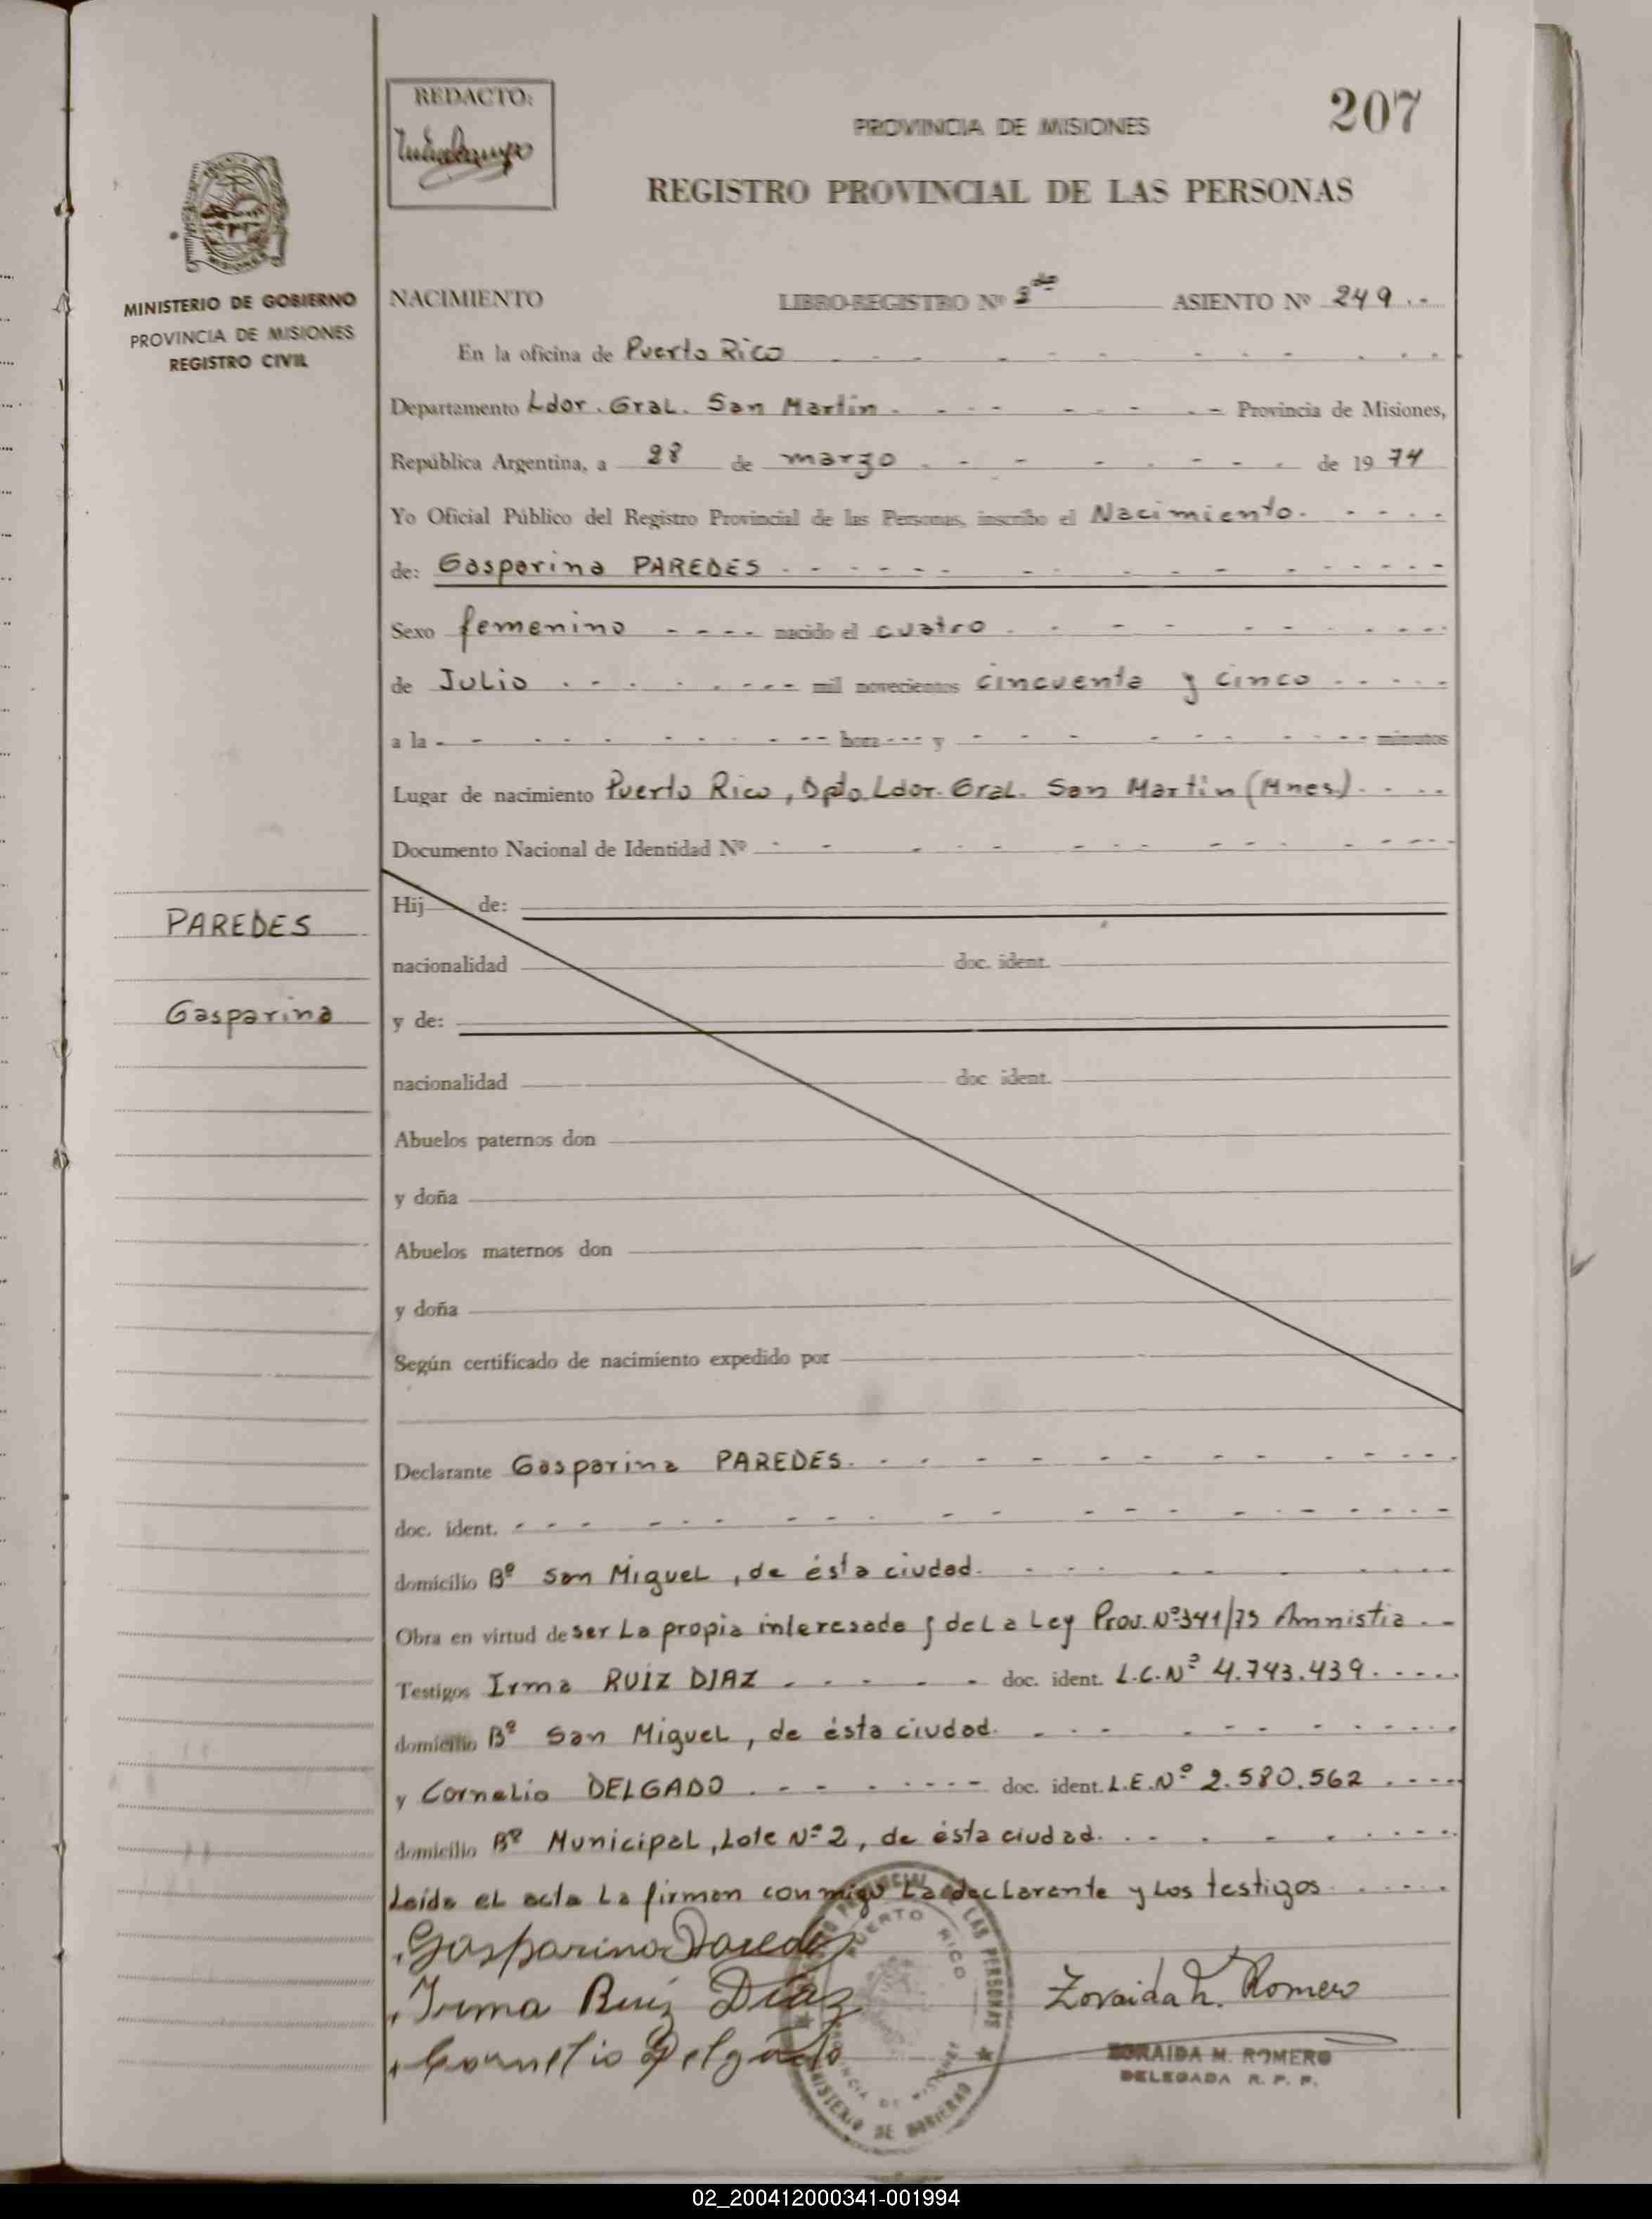 REDACTO:
207
PROVINCIA DE MISIONES
REGISTRO PROVINCIAL DE LAS PERSONAS
MISIONES
MINISTERIO DE GOBIERNO
PROVINCIA DE MISIONES
REGISTRO CIVIL
NACIMIENTO LIBRO-REGISTRO Nº ASIENTO Nº 249
En la oficina de Puerto Rico
Departamento Ldor. Gral. San Martín Provincia de Misiones,
República Argentina, a 28 de marzo de 1974
Yo Oficial Público del Registro Provincial de las Personas, inscribo el Nacimiento.
de: Gasparina PAREDES
Sexo femenino nacido el cuatro
de Julio mil novecientos cincuenta y cinco
a la hora y minutos
Lugar de nacimiento Puerto Rico, Dpto. Ldor. Gral. San Martín (Mnes.)
Documento Nacional de Identidad Nº
PAREDES
Gasparina
Hij de:
nacionalidad doc. ident.
y de:
nacionalidad doc ident.
Abuelos paternos don
y doña
Abuelos maternos don
y doña
Según certificado de nacimiento expedido por
Declarante Gasparina PAREDES.
doc. ident.
domicilio Bº San Miguel, de ésta ciudad.
Obra en virtud de ser La propia interesada y de La Ley Prov. Nº 341/73 Amnistia
Testigos Irma RUIZ DIAZ doc. ident. L.C.Nº 4.743.439
domicilio Bº San Miguel, de ésta ciudad.
y Cornelio DELGADO doc. ident. L.E.Nº 2.580.562
domicilio Bº Municipal, Lote Nº 2, de ésta ciudad.
Leída el acta La firman conmigo La declarante y Los testigos
Gasparina Paredes
Irma Ruiz Díaz
Cornelio Delgado
Zoraida M. Romero
ZORAIDA M. ROMERO
DELEGADA R. P. P.
PUERTO RICO
MINISTERIO DE GOBIERNO
02_200412000341-001994